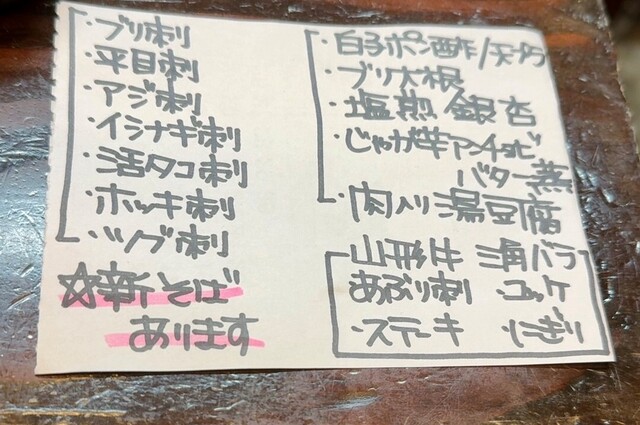 ・ブリ刺
・平目刺
・アジ刺
・イシナギ刺
・活タコ刺
・ホッキ刺
・ツブ刺
☆新そば
あります
・白子ポン酢/天ぷら
・ブリ大根
・塩煎銀杏
・じゃが芋アンチョビ
バター蒸
・肉入り湯豆腐
山形牛 三角バラ
・あぶり刺 ・ユッケ
・ステーキ ・にぎり